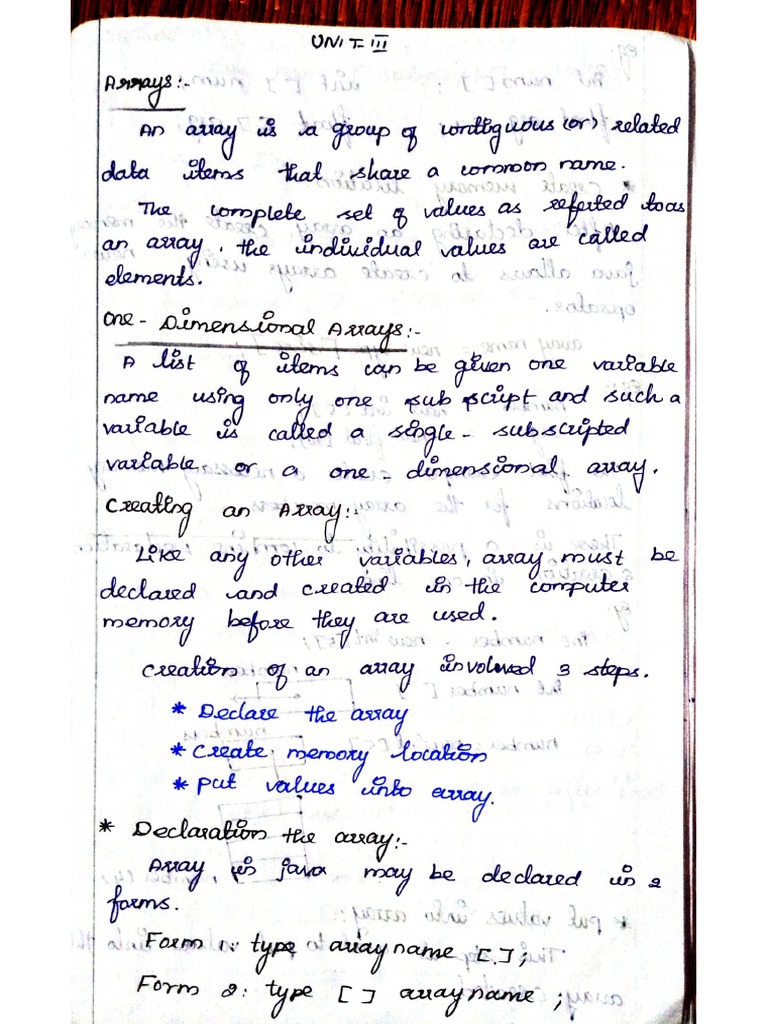 UNIT-III
Arrays:-
An array is a group of contiguous (or) related
data items that share a common name.
The complete set of values as referred to as
an array, the individual values are called
elements.
One-Dimensional Arrays:-
A list of items can be given one variable
name using only one subscript and such a
variable is called a single-subscripted
variable or a one-dimensional array.
Creating an Array:-
Like any other variables, array must be
declared and created in the computer
memory before they are used.
Creation of an array involved 3 steps.
* Declare the array
* Create memory location
* put values into array.
* Declaration the array:-
Array in java may be declared in 2
forms.
Form 1: type arrayname [ ];
Form 2: type [ ] arrayname ;